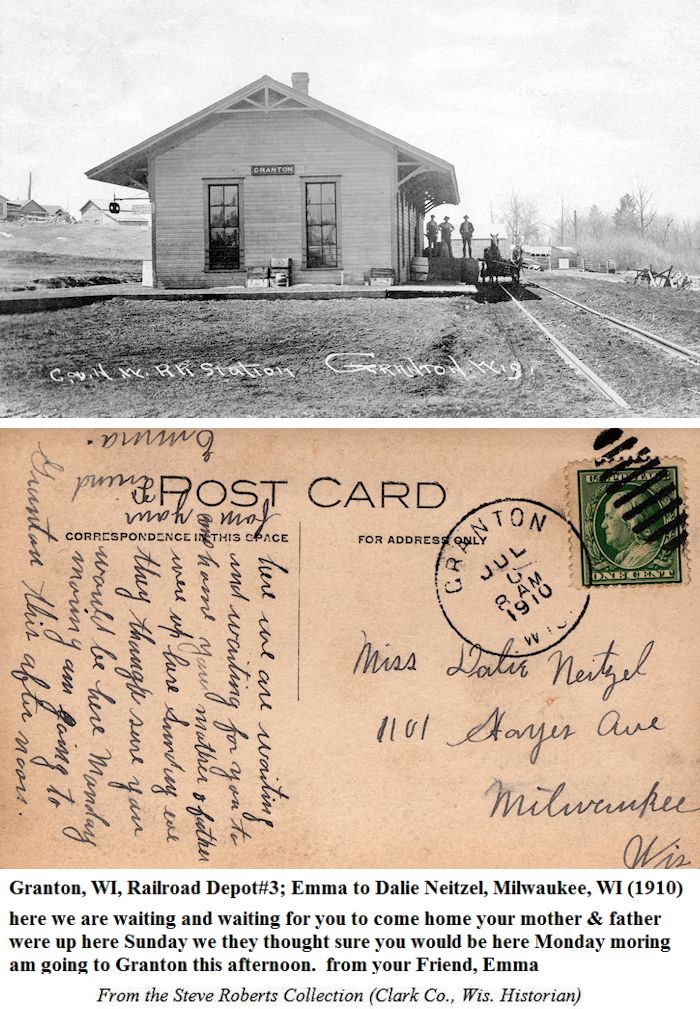 GRANTON
C. & N. W. RR Station Granton Wis
POST CARD
CORRESPONDENCE IN THIS SPACE
FOR ADDRESS ONLY
GRANTON
JUL
8 AM
1910
WIS.
ONE CENT
Miss Dalie Neitzel
1101 Hayes Ave
Milwaukee
Wis
here we are waiting
and waiting for you to
come home your mother & father
were up here Sunday eve
they though sure you
would be here Monday
moring am going to
Granton this after noon.
from your
Friend
Emma.
Granton, WI, Railroad Depot#3; Emma to Dalie Neitzel, Milwaukee, WI (1910)
here we are waiting and waiting for you to come home your mother & father
were up here Sunday we they thought sure you would be here Monday moring
am going to Granton this afternoon.  from your Friend, Emma
From the Steve Roberts Collection (Clark Co., Wis. Historian)